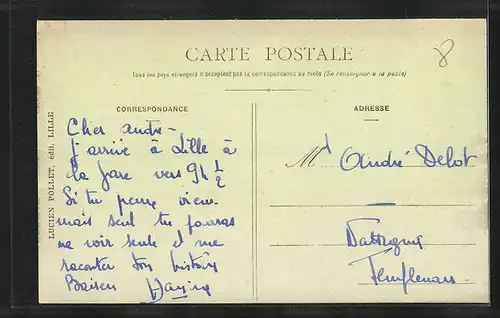 CARTE POSTALE
8
Tous les pays étrangers n'acceptent pas la correspondance au recto (Se renseigner à la poste)
CORRESPONDANCE
ADRESSE
LUCIEN POLLET, édit. LILLE
Cher andré -
J'arrive à Lille à
la gare vers 9h ½
Si tu peux viens
mais seul tu pourras
me voir seule et me
raconter ton histoire
Baisers
Mr André Delot
Templeuve